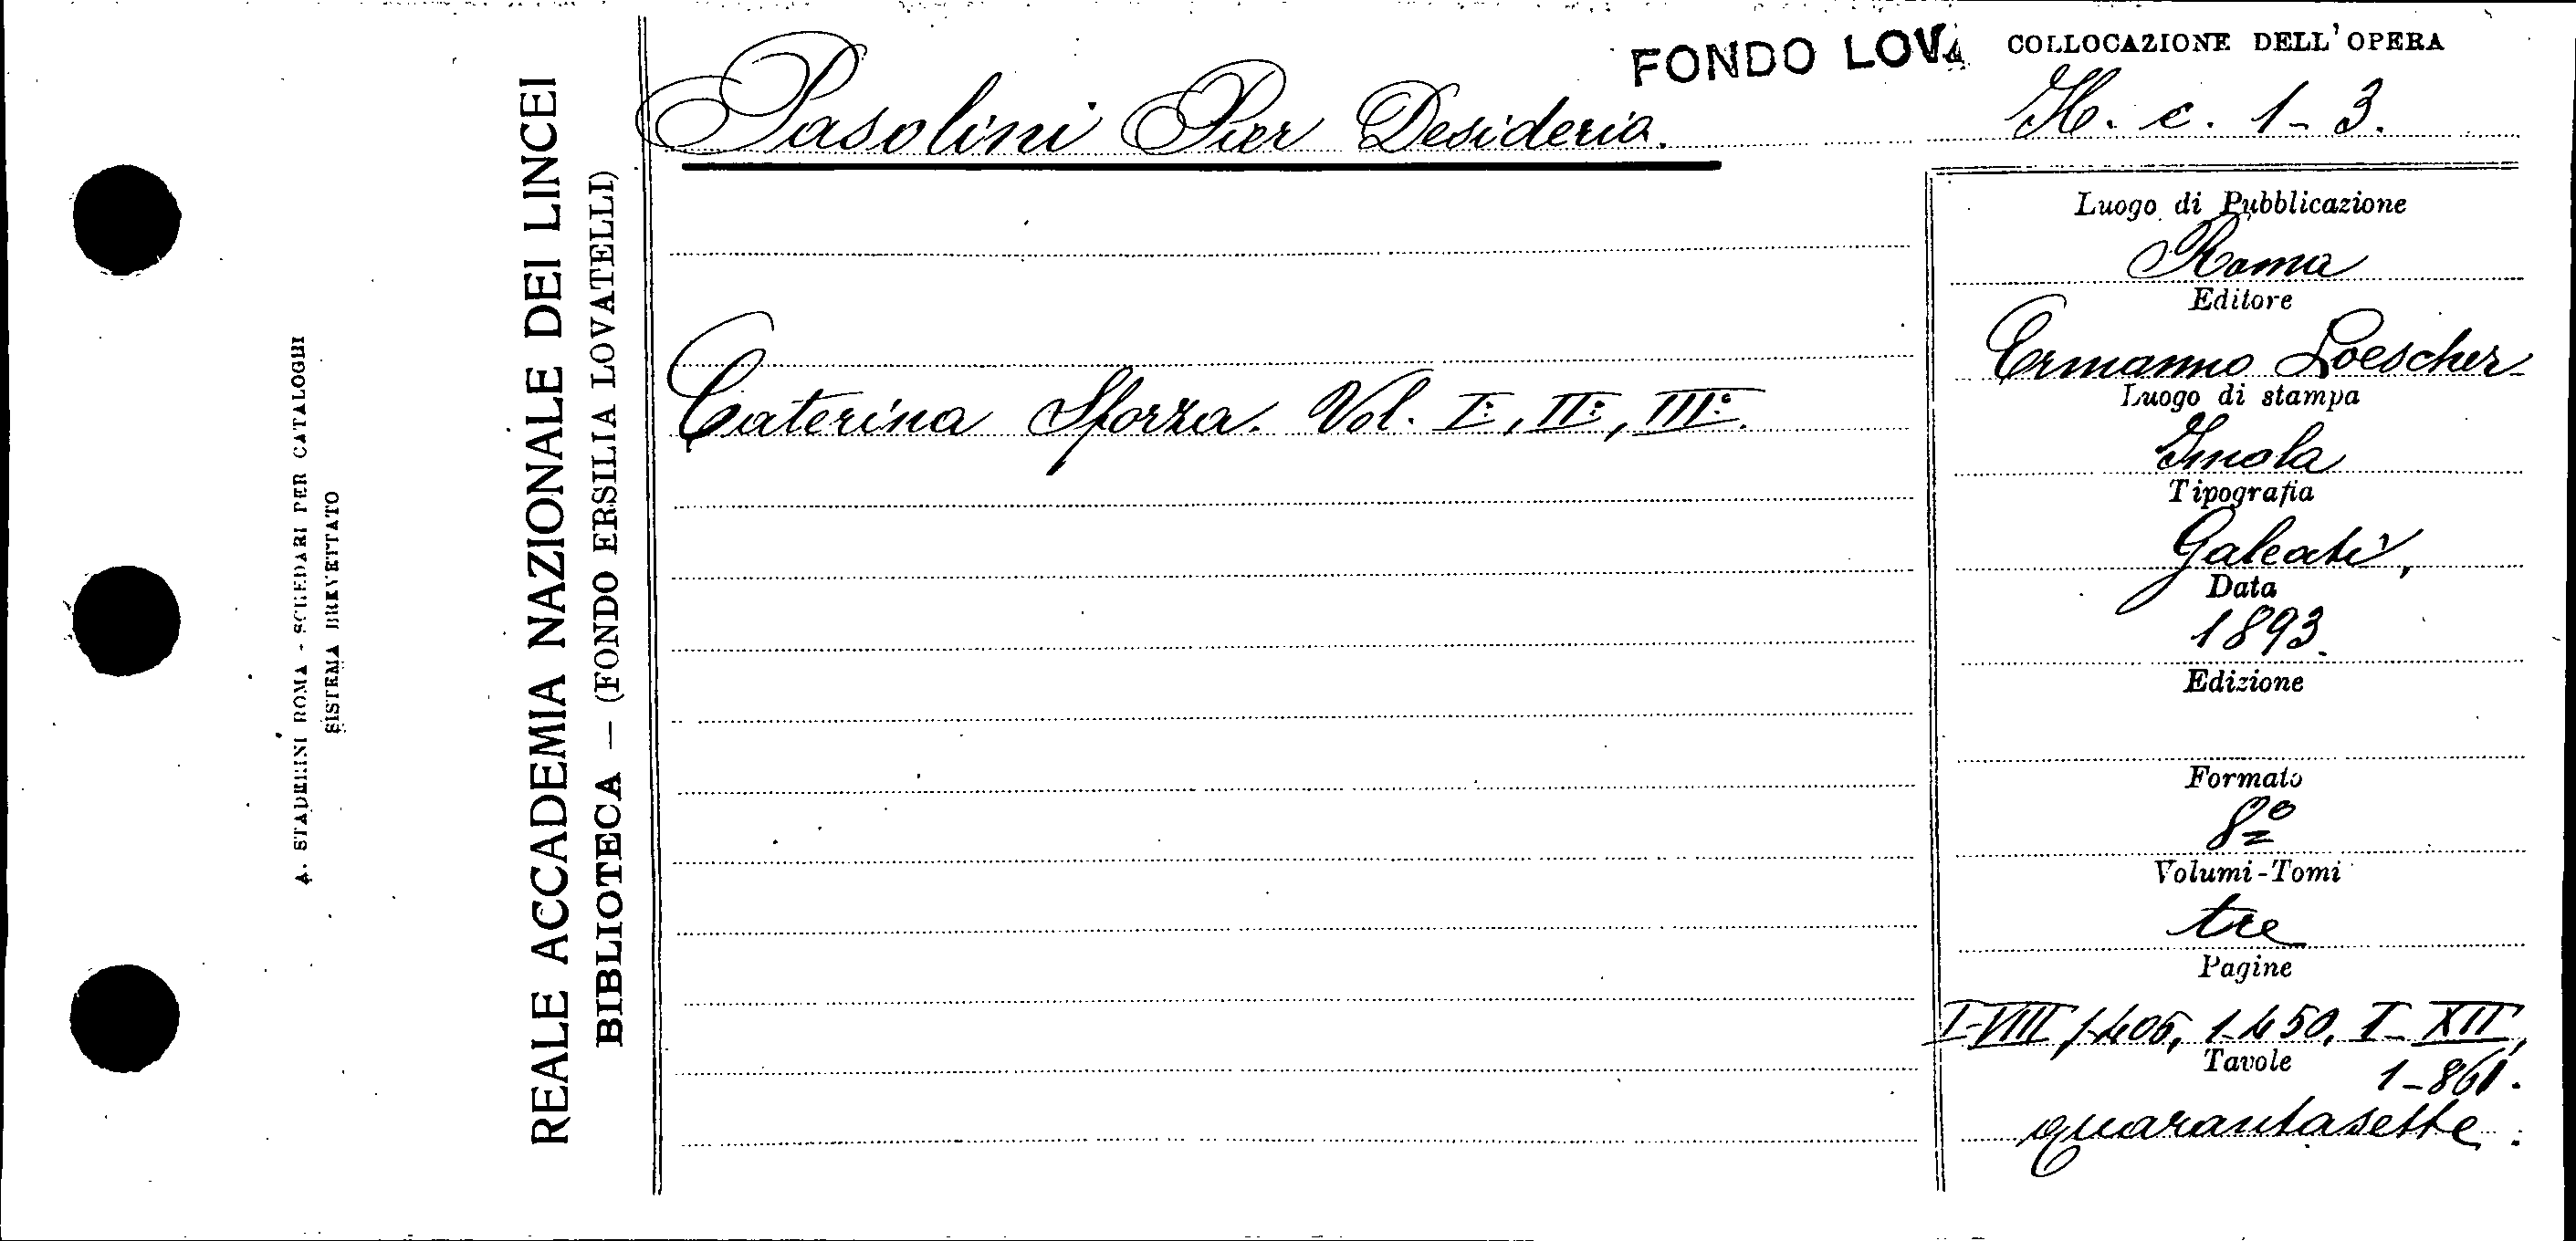 A. STADERINI ROMA - SCHEDARI PER CATALOGHI
SISTEMA BREVETTATO
REALE ACCADEMIA NAZIONALE DEI LINCEI
BIBLIOTECA — (FONDO ERSILIA LOVATELLI)
FONDO LOVA
COLLOCAZIONE DELL'OPERA
H. c. 1-3.
Pasolini Pier Desiderio.
Caterina Sforza. Vol. I°, II°, III°.
Luogo di Pubblicazione
Roma
Editore
Ermanno Loescher
Luogo di stampa
Imola
Tipografia
Galeati,
Data
1893.
Edizione
Formato
8º
Volumi-Tomi
tre
Pagine
I-VIII, 1-405, 1-450, I-XII,
1-861.
Tavole
quarantasette.